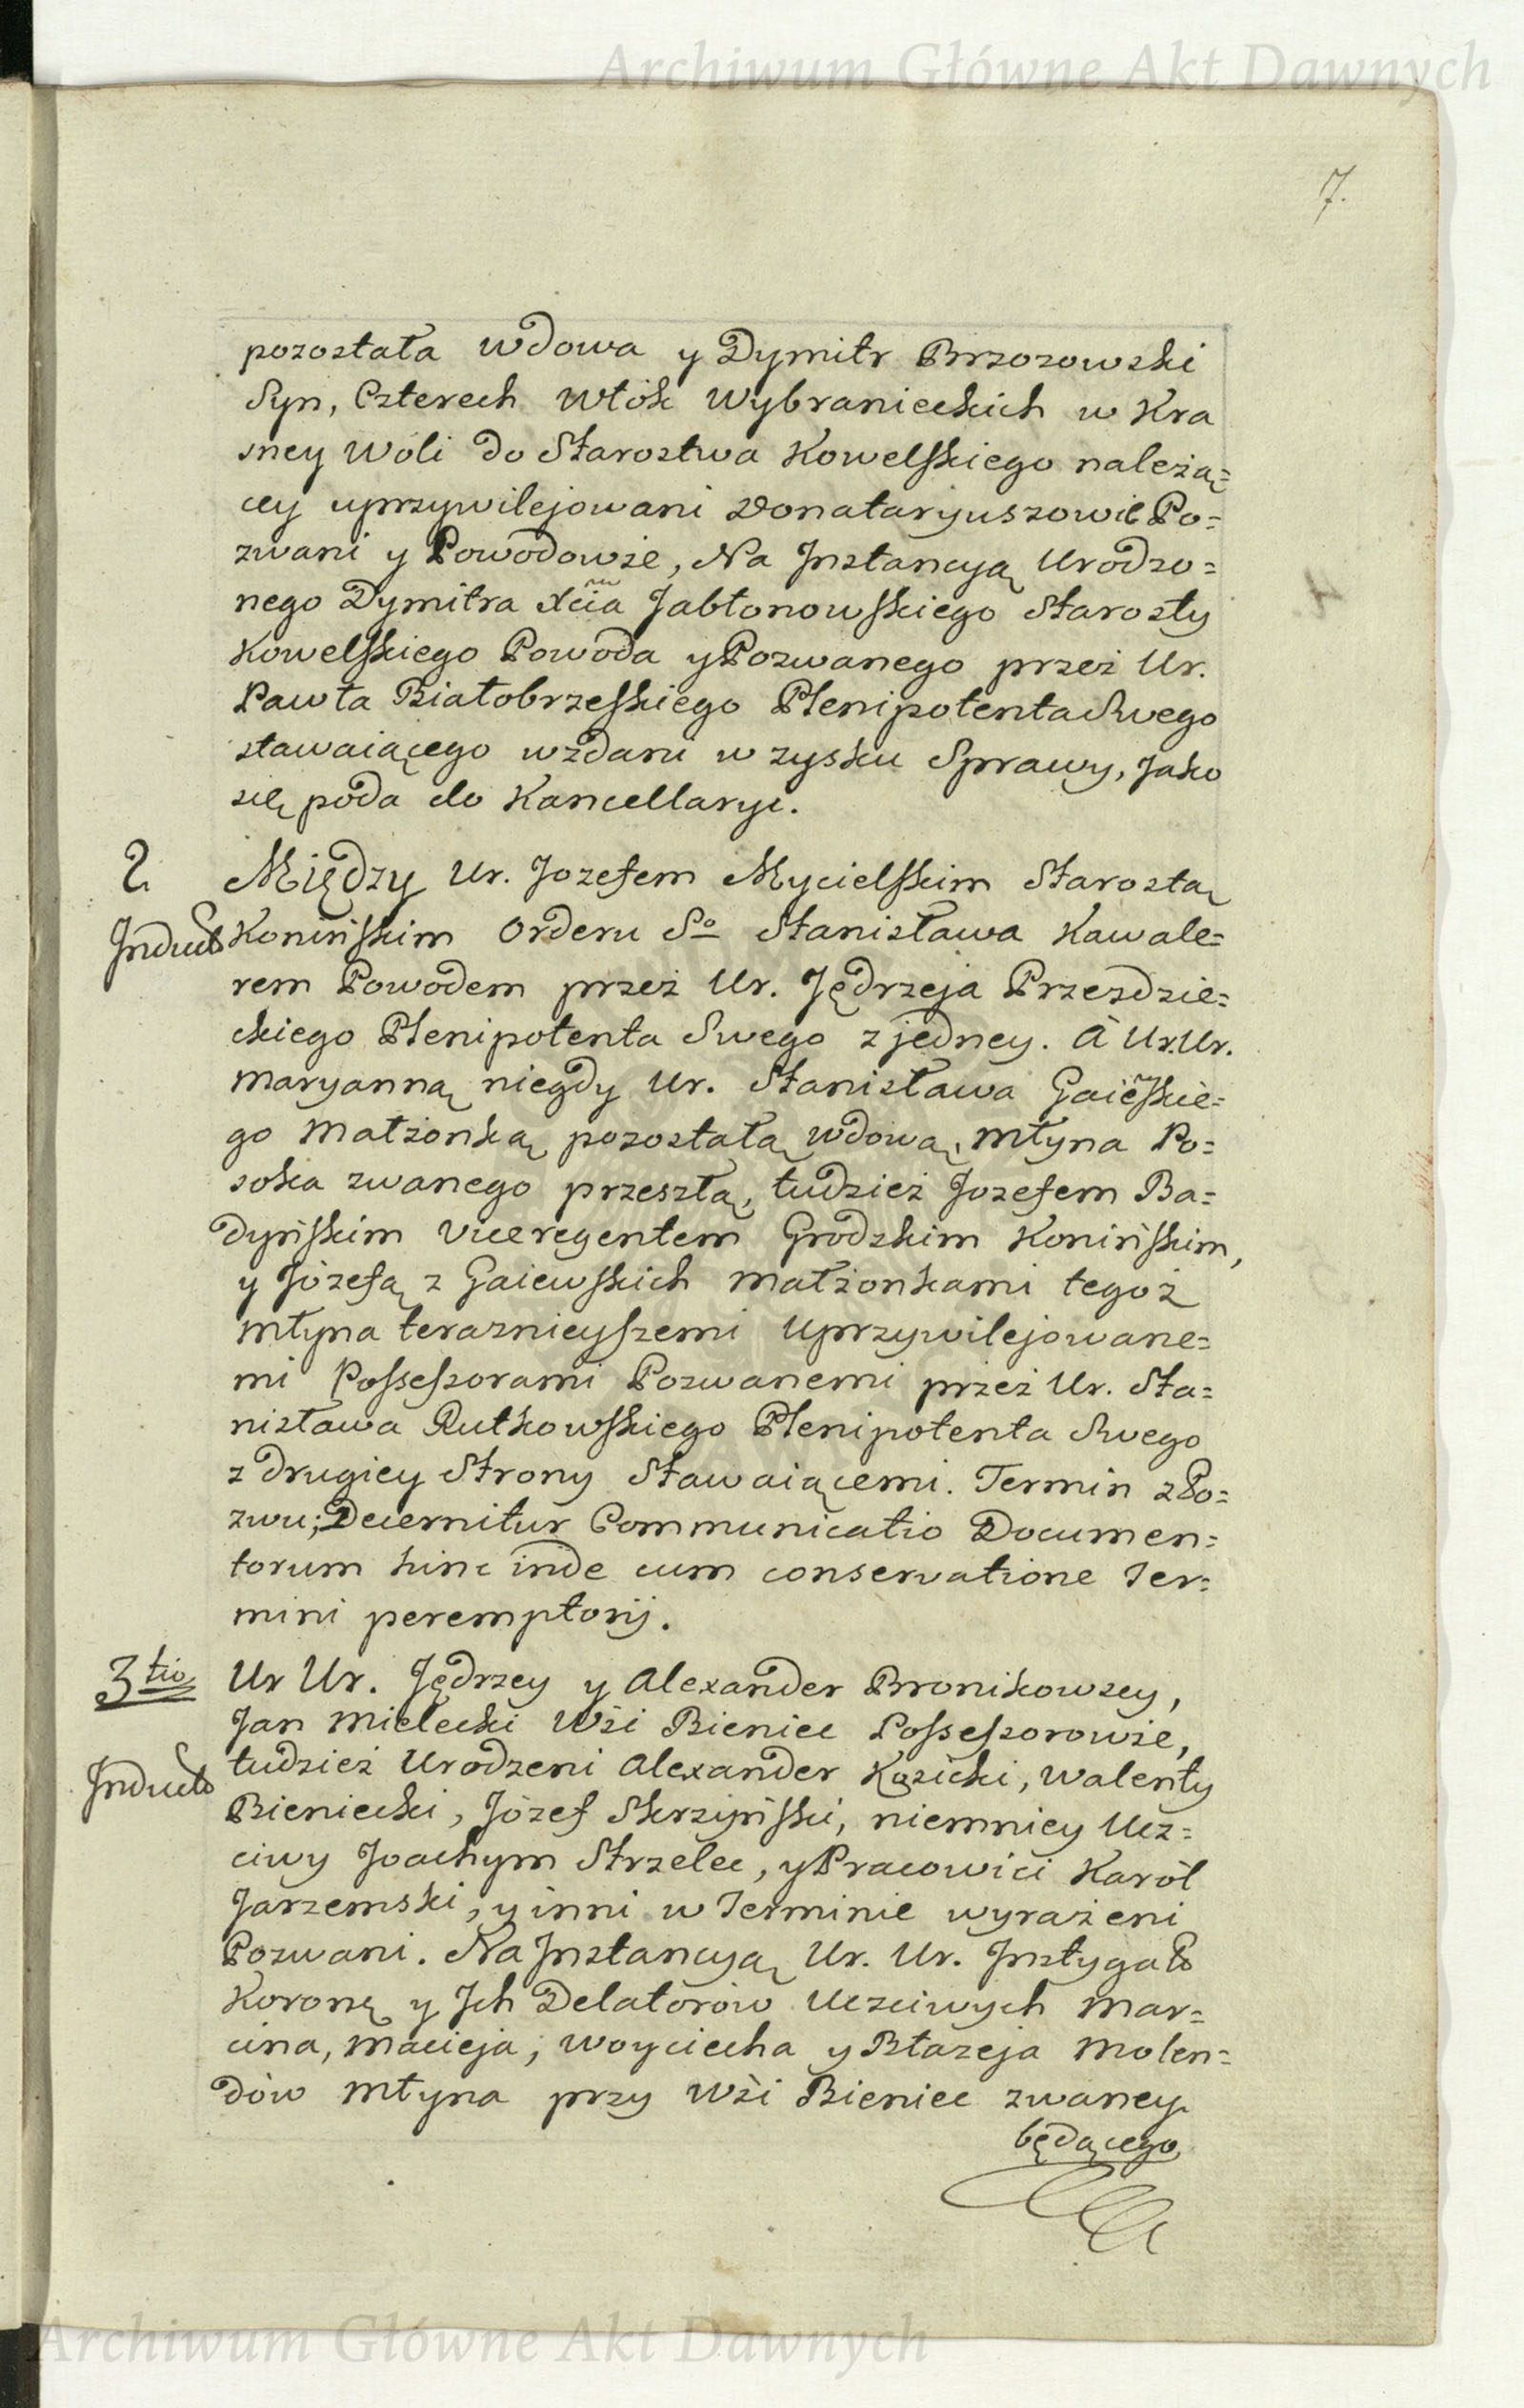 Archiwum Główne Akt Dawnych
7.
pozostała wdowa y Dymitr Brzozowski
Syn, Czterech Włók Wybranieckich w Kra
sney Woli do Starostwa Kowelskiego należą=
cey uprzywilejowani Donataryuszowie Po=
zwani y Powodowie, Na Instancyą Urodzo=
nego Dymitra Xcia Jabłonowskiego Starosty
Kowelskiego Powoda y Pozwanego przez Ur.
Pawła Białobrzeskiego Plenipotenta Swego
stawaiącego wzdani w zysku Sprawy, Jako
się poda do Kancellaryi.
2. Między Ur. Jozefem Mycielskim Starostą
Induct Konińskim Orderu So Stanisława Kawale=
rem Powodem przez Ur. Jędrzeja Przezdzie=
ckiego Plenipotenta Swego z jedney. À Ur. Ur.
Maryanną niegdy Ur. Stanisława Gaiewskie=
go Małżonką pozostałą wdową, Młyna Po=
soka zwanego przeszłą, tudzież Jozefem Ba=
dyńskim Viceregentem Grodzkim Konińskim,
y Józefą z Gaiewskich Małżonkami tegoż
Młyna teraznieyszemi Uprzywilejowane=
mi Possessorami Pozwanemi przez Ur. Sta=
nisława Rutkowskiego Plenipotenta Swego
z drugiey Strony Stawaiącemi. Termin z Po=
zwu; Decernitur Communicatio Documen=
torum hinc inde cum conservatione Ter=
mini peremptorij.
3tio Ur Ur. Jędrzey y Alexander Bronikowscy,
Jan Mielecki Wśi Bieniec Possessorowie,
Induct tudzież Urodzeni Alexander Kozicki, Walenty
Bieniecki, Józef Skrzyński, niemniey Ucz=
ciwy Joachym Strzelec, y Pracowici Karól
Jarzemski, y inni w Terminie wyrażeni
Pozwani. Na Instancyą Ur. Ur. Instygat
Koronę y Ich Delatorów Uczciwych Mar=
cina, Macieja, Woyciecha y Błazeja Molen=
dów Młyna przy Wśi Bieniec zwaney
będącego
Archiwum Główne Akt Dawnych